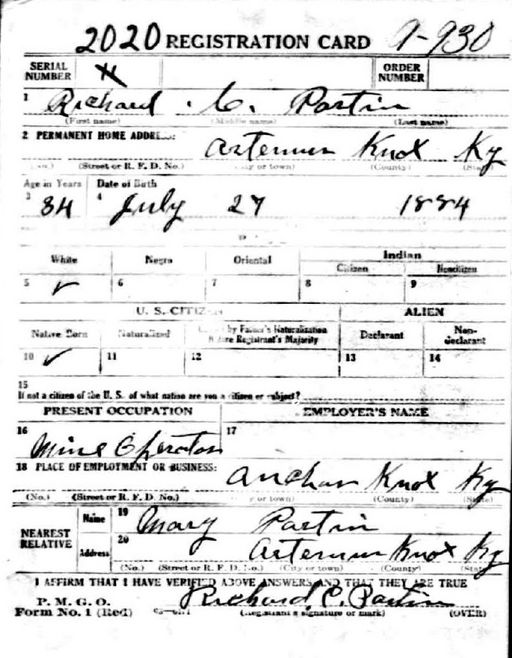 2020 REGISTRATION CARD A-930
SERIAL NUMBER ORDER NUMBER
1 Richard C. Partin
(First name) (Middle name) (Last name)
2 PERMANENT HOME ADDRESS:
Artemus Knox Ky
(No.) (Street or R. F. D. No.) (City or town) (County) (State)
Age in Years Date of Birth
3 34 4 July 27 1884
White Negro Oriental Indian
Citizen Noncitizen
5 ✓ 6 7 8 9
U. S. CITIZEN ALIEN
Native Born Naturalized Citizen by Father's Naturalization Before Registrant's Majority Declarant Non-declarant
10 ✓ 11 12 13 14
15
If not a citizen of the U. S. of what nation are you a citizen or subject?
PRESENT OCCUPATION EMPLOYER'S NAME
16 Mine Operator 17
18 PLACE OF EMPLOYMENT OR BUSINESS:
Knox Ky
(No.) (Street or R. F. D. No.) (City or town) (County) (State)
NEAREST RELATIVE
Name 19 Mary Partin
Address 20 Artemus Knox Ky
(No.) (Street or R. F. D. No.) (City or town) (County) (State)
I AFFIRM THAT I HAVE VERIFIED ABOVE ANSWERS AND THAT THEY ARE TRUE
P. M. G. O.
Form No. 1 (Red) Richard C. Partin
(Registrant's signature or mark) (OVER)